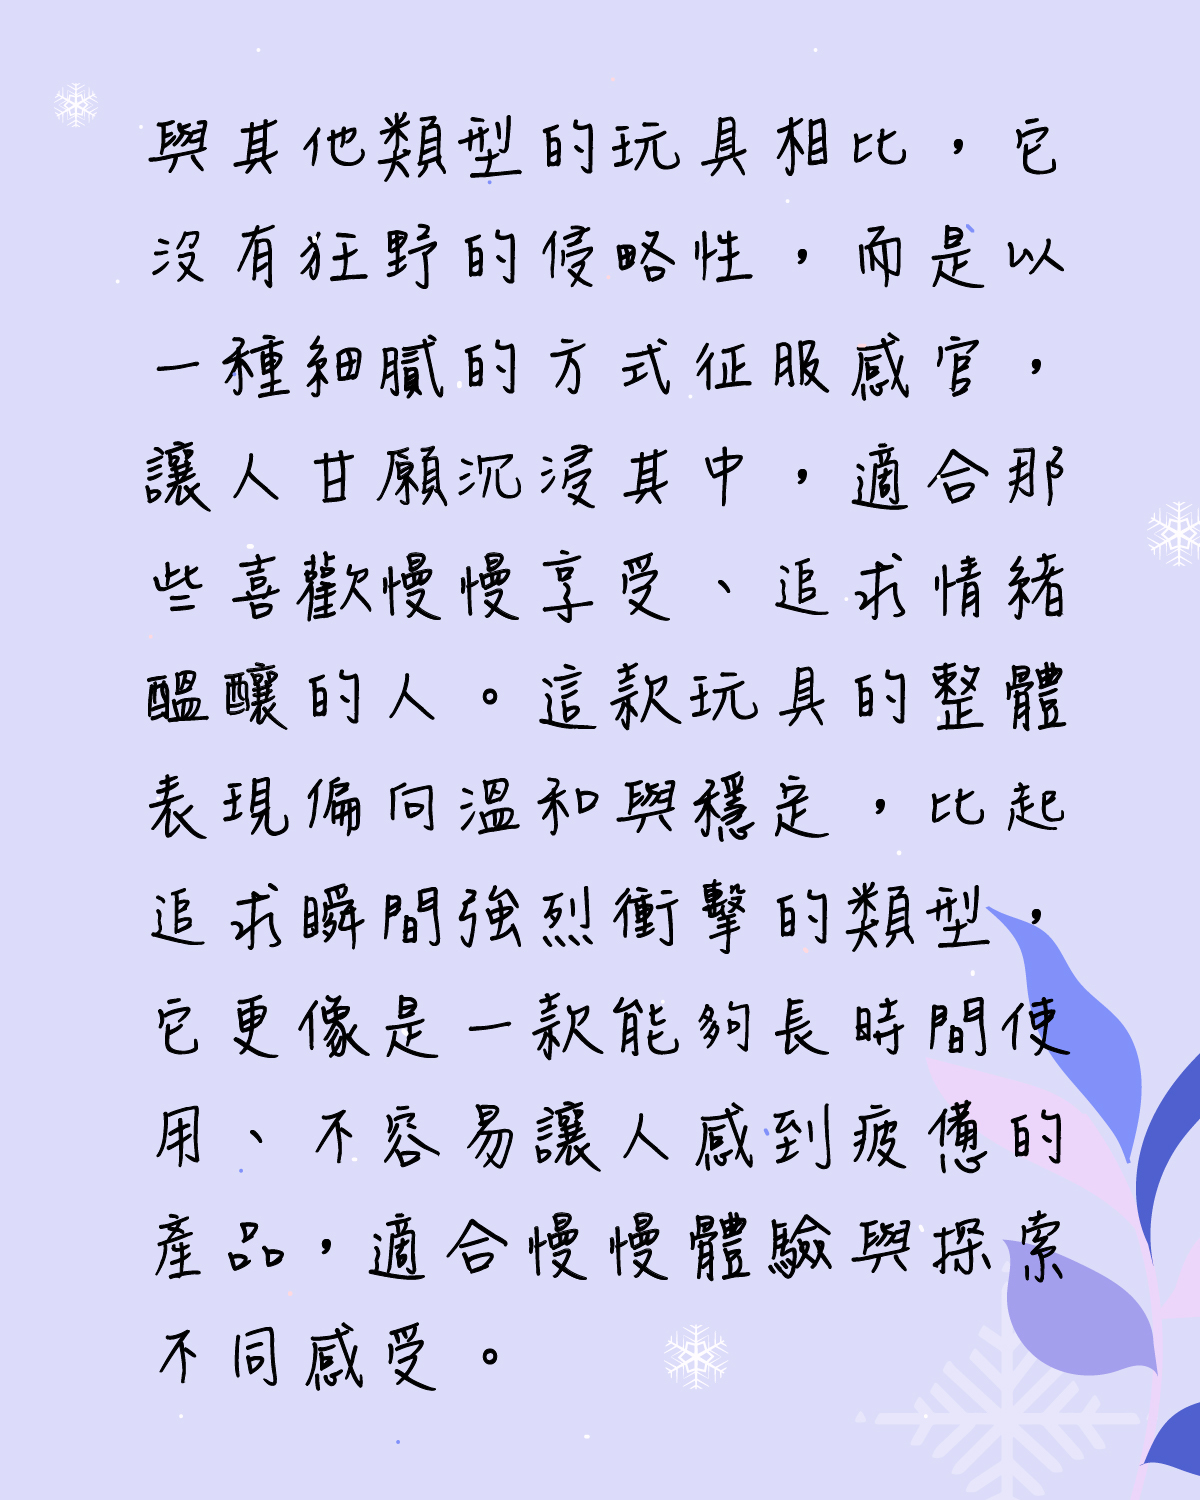 與其他類型的玩具相比，它
沒有狂野的侵略性，而是以
一種細膩的方式征服感官，
讓人甘願沉浸其中，適合那
些喜歡慢慢享受、追求情緒
醞釀的人。這款玩具的整體
表現偏向溫和與穩定，比起
追求瞬間強烈衝擊的類型，
它更像是一款能夠長時間使
用、不容易讓人感到疲憊的
產品，適合慢慢體驗與探索
不同感受。